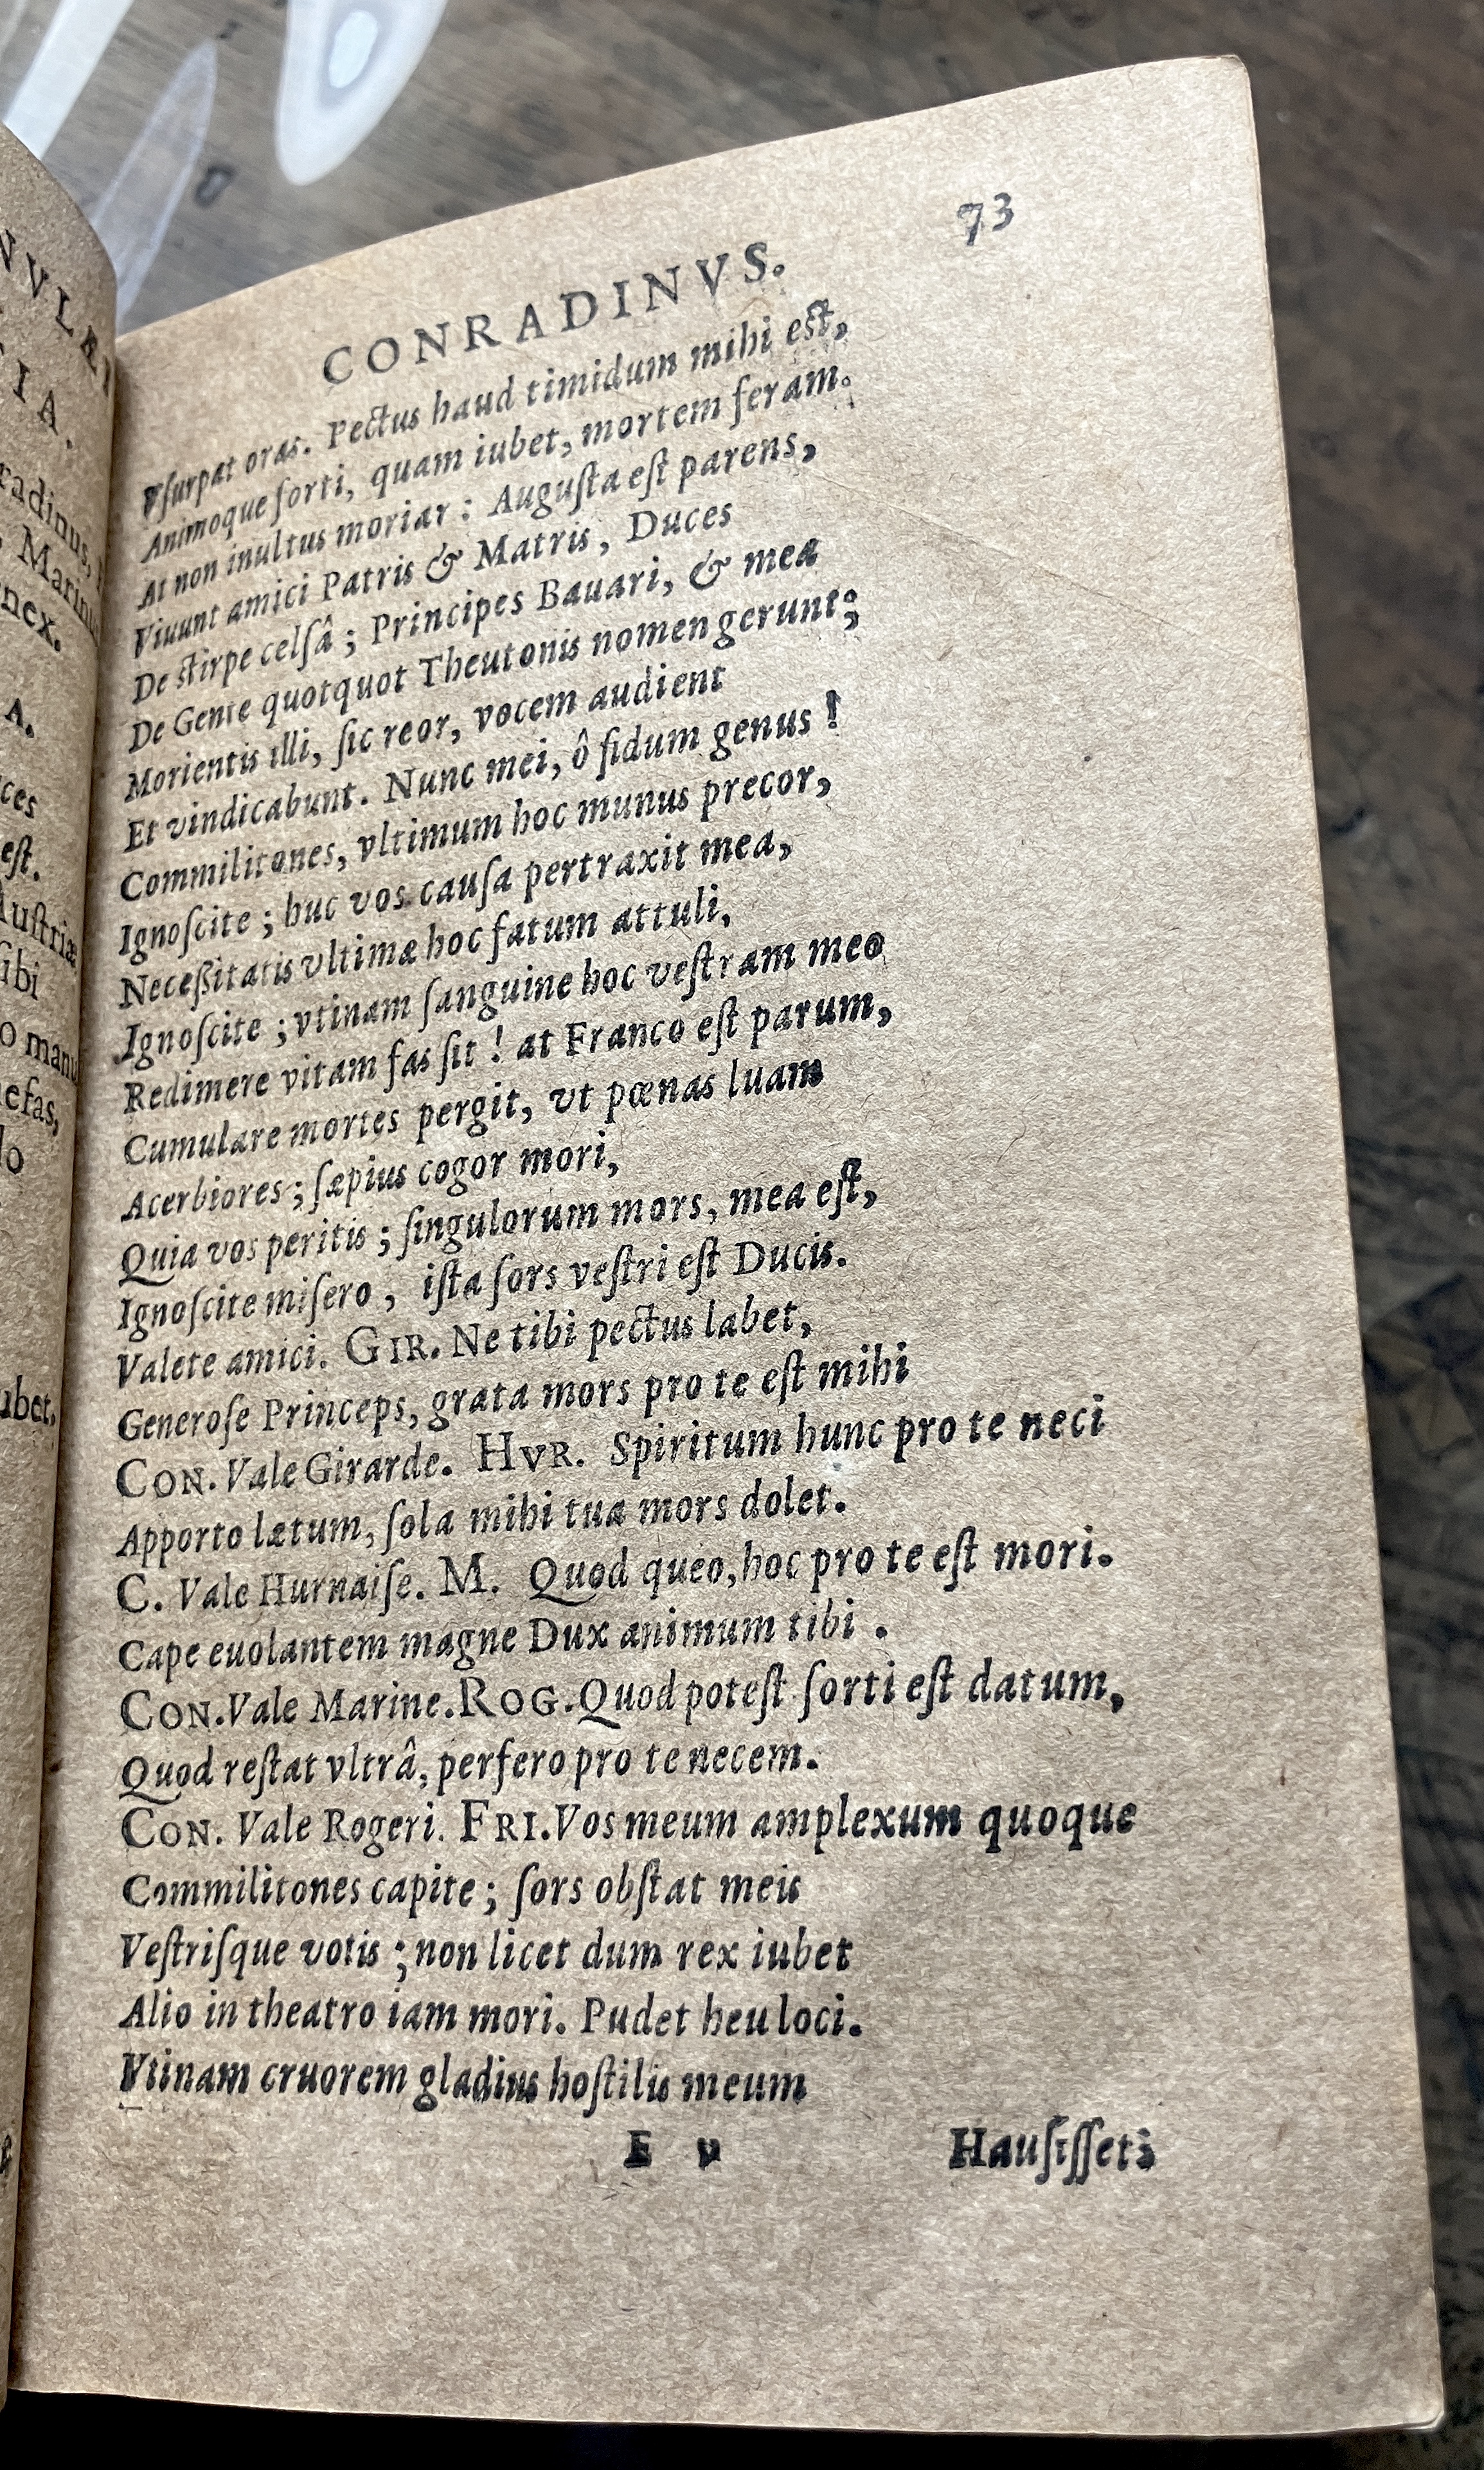 NVLÆ
TIA.
radinus,
, Marinu
nex.
A.
ces
eſt.
Auſtriæ
ſibi
o manu
efas,
do
ubet,
73
CONRADINVS.
Vſurpat oras. Pectus haud timidum mihi eſt,
Animoque forti, quam iubet, mortem feram.
At non inultus moriar : Auguſta eſt parens,
Viuunt amici Patris & Matris, Duces
De ſtirpe celſâ ; Principes Bauari, & mea
De Gente quotquot Theutonis nomen gerunt;
Morientis illi, ſic reor, vocem audient
Et vindicabunt. Nunc mei, ô fidum genus !
Commilitones, vltimum hoc munus precor,
Ignoſcite ; huc vos cauſa pertraxit mea,
Neceßitatis vltimæ hoc fatum attuli,
Ignoſcite ; vtinam ſanguine hoc veſtram meo
Redimere vitam fas ſit ! at Franco eſt parum,
Cumulare mortes pergit, vt pœnas luam
Acerbiores ; ſæpius cogor mori,
Quia vos peritis ; ſingulorum mors, mea eſt,
Ignoſcite miſero , iſta ſors veſtri eſt Ducis.
Valete amici. GIR. Ne tibi pectus labet,
Generoſe Princeps, grata mors pro te eſt mihi
CON. Vale Girarde. HVR. Spiritum hunc pro te neci
Apporto lætum, ſola mihi tua mors dolet.
C. Vale Hurnaiſe. M. Quod queo, hoc pro te eſt mori.
Cape euolantem magne Dux animum tibi .
CON. Vale Marine. ROG. Quod poteſt ſorti eſt datum,
Quod reſtat vltrâ, perfero pro te necem.
CON. Vale Rogeri. FRI. Vos meum amplexum quoque
Commilitones capite ; ſors obſtat meis
Veſtriſque votis ; non licet dum rex iubet
Alio in theatro iam mori. Pudet heu loci.
Vtinam cruorem gladius hoſtilis meum
E v Hauſiſſet;